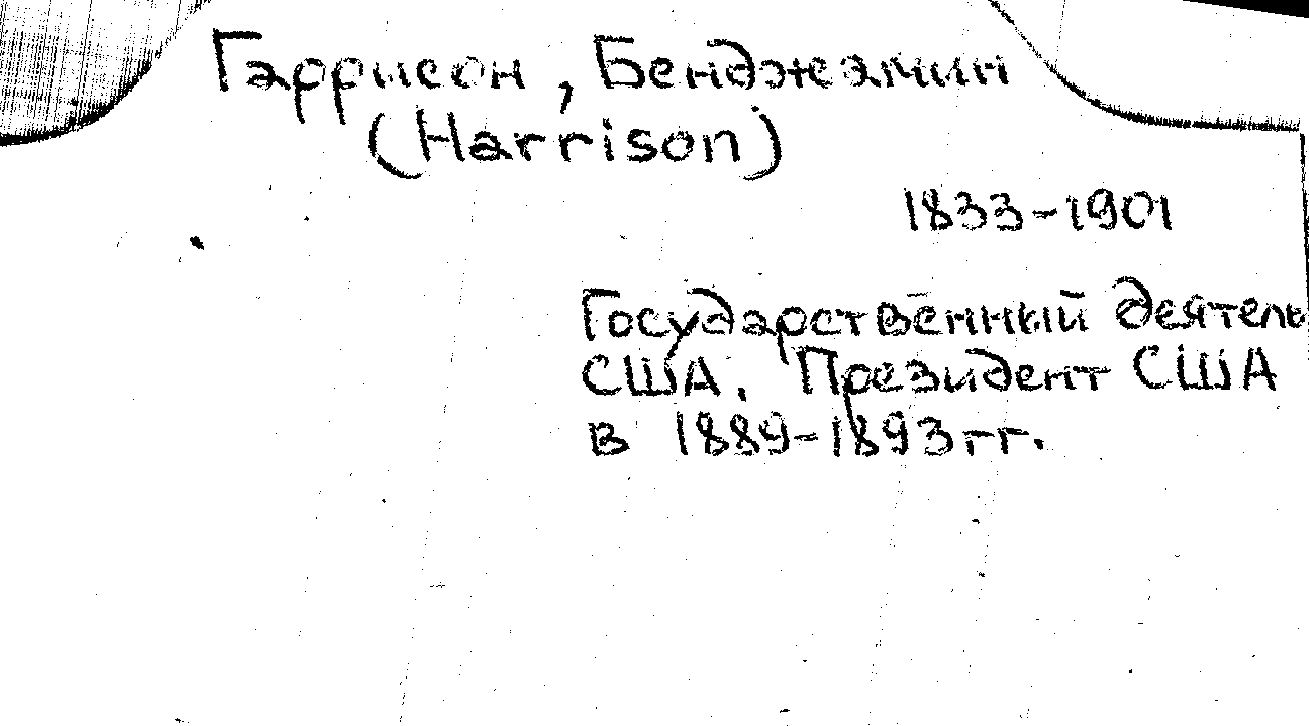 Гаррисон, Бенджамин
(Harrison)
1833-1901
Государственный деятель
США. Президент США
в 1889-1893 гг.